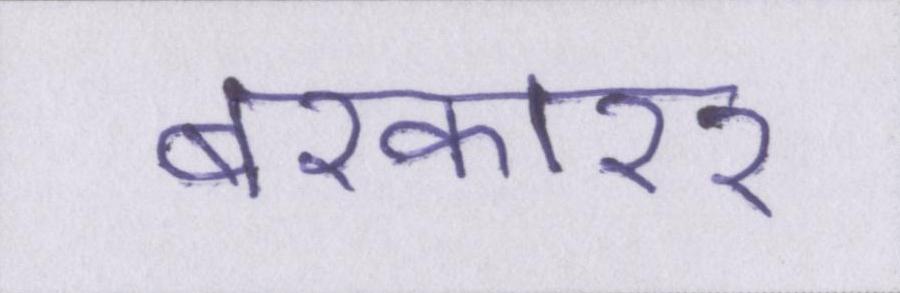 बरकारर